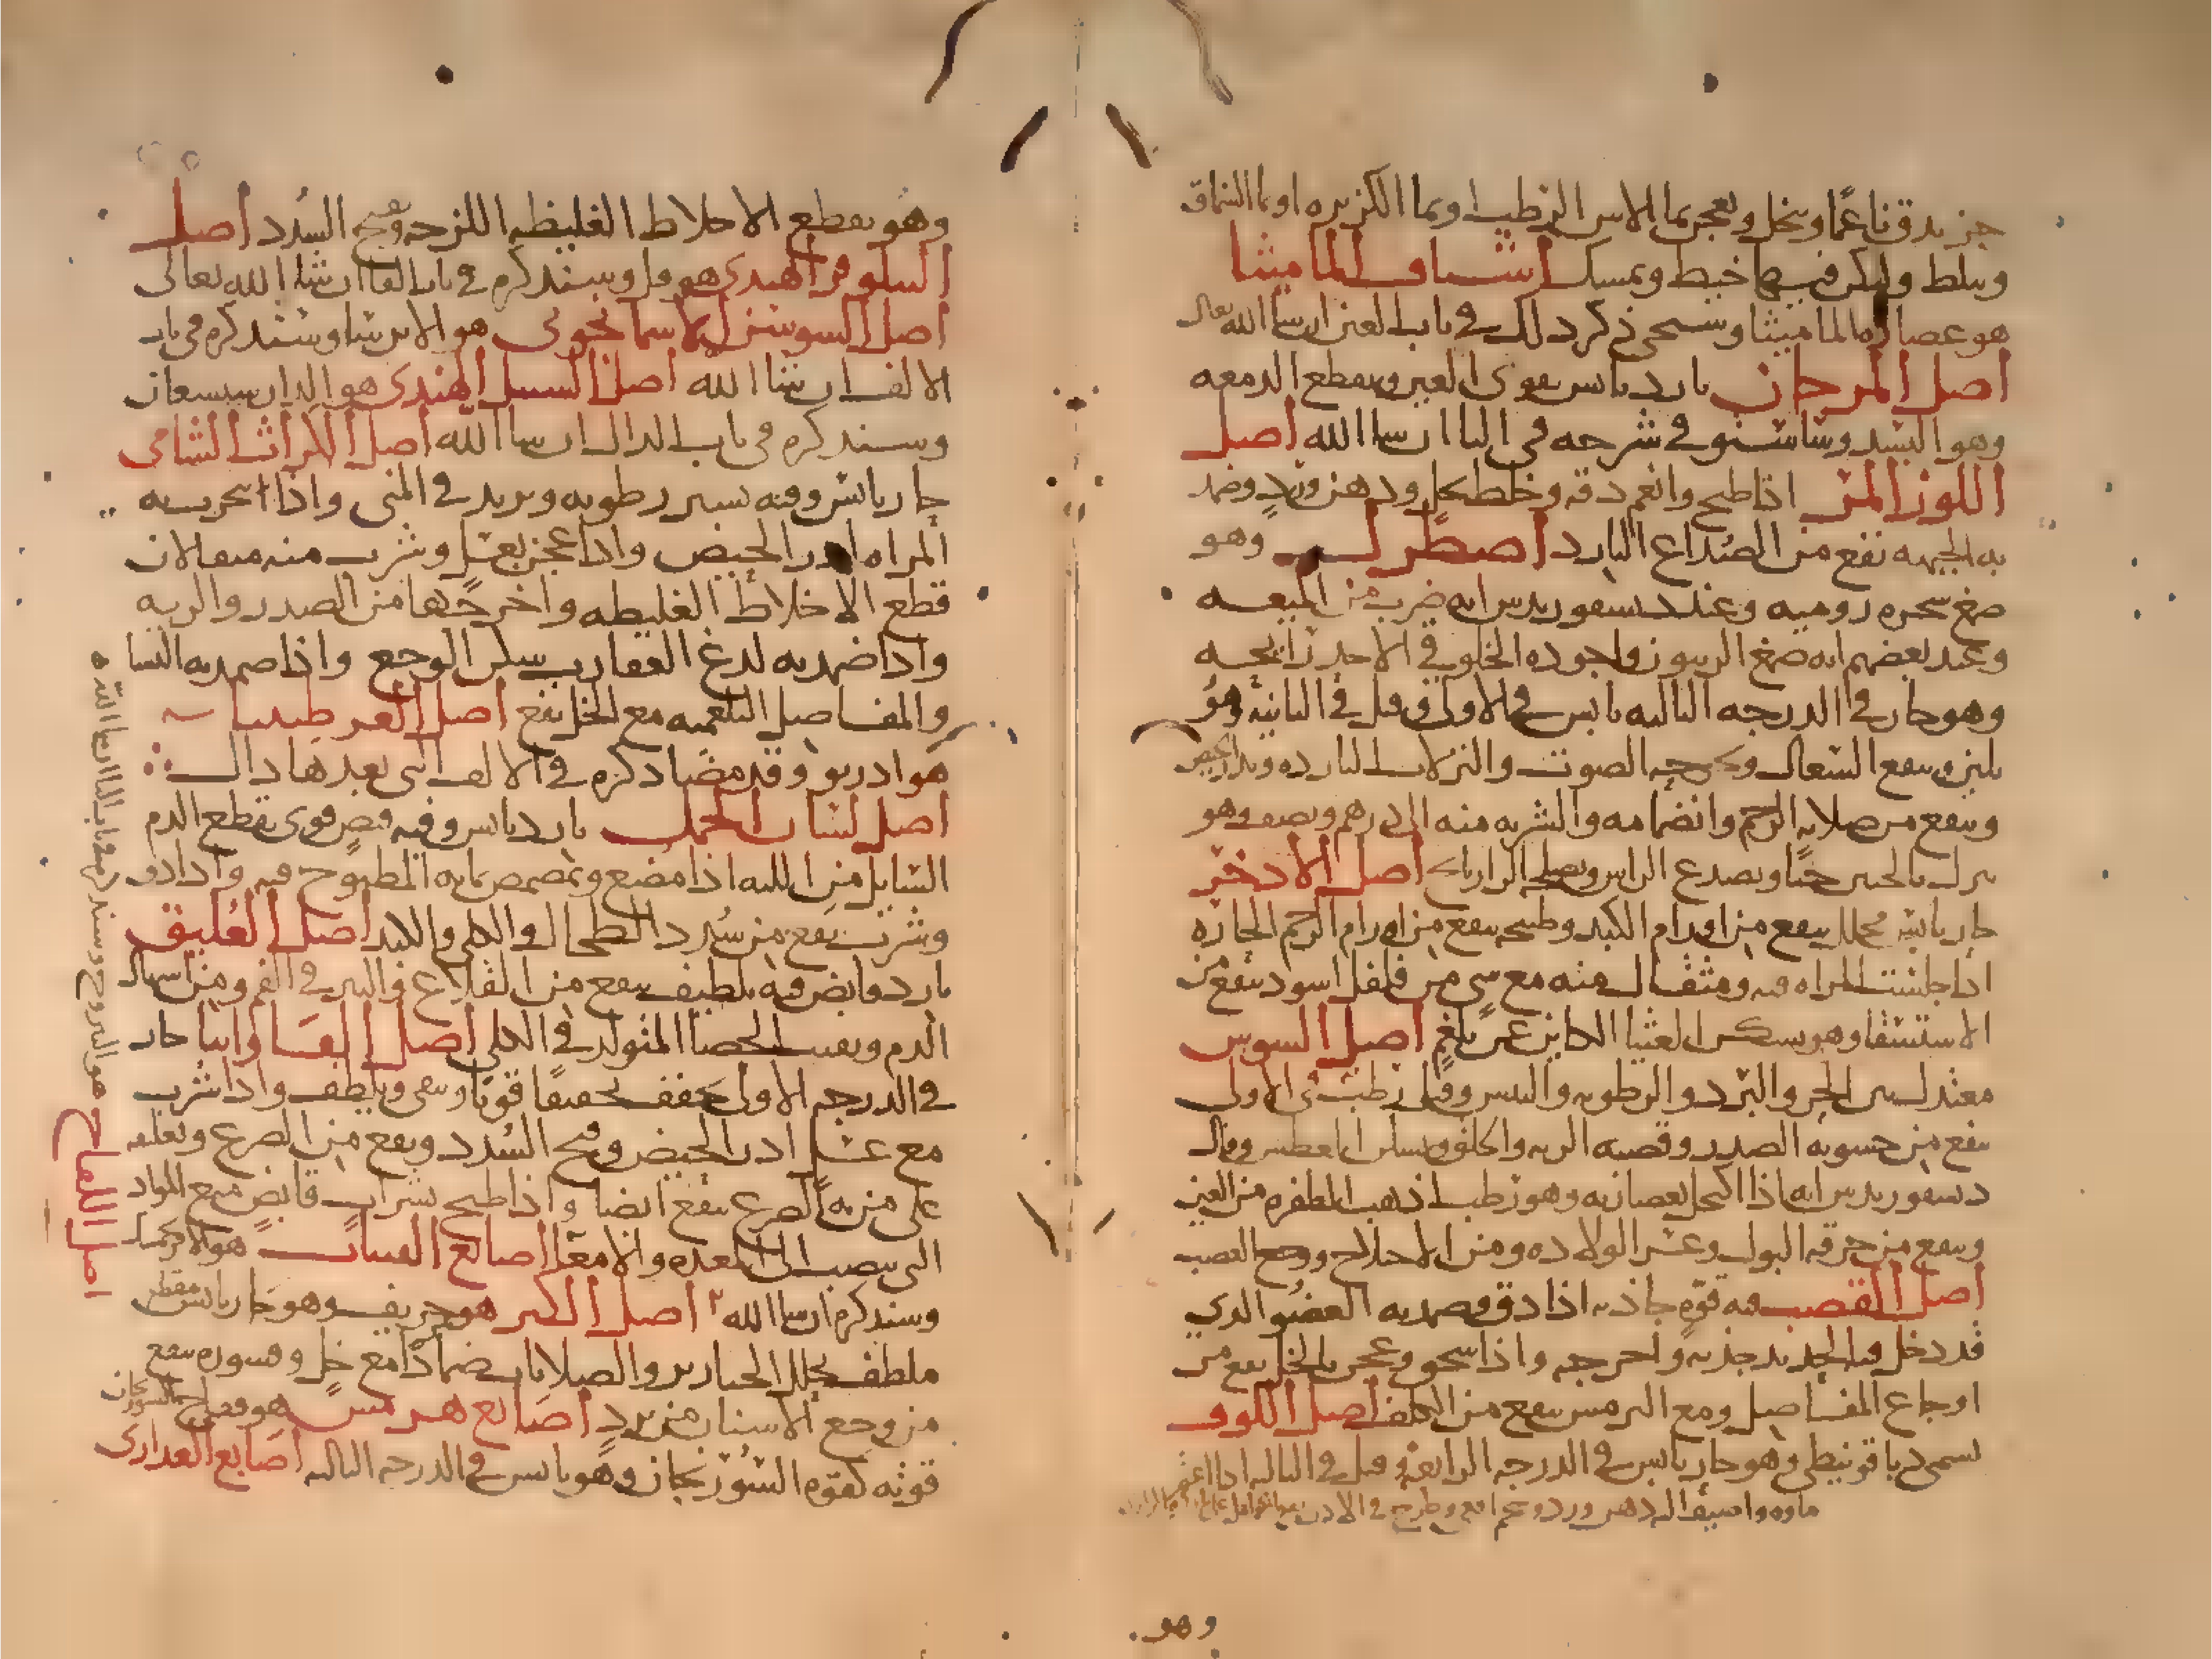 جزء يدق ناعما وينخل ويعجن بماء الاس الرطب او بماء الكزبره او بماء السماق
ويبلط وليكن فيها خيط ويمسك اشياف الماميثا
هو عصاره الماميثا وسيجي ذكر ذلك في باب العين ان شا الله تعالى
اصل المرجان بارد يابس يقوي العين ويقطع الدمعه
وهو البسد وسا في شرحه في البا ان شا الله اصل
اللوز المر اذا طبخ وانعم دقه وخلط بخل ودهن ورد وضمد
به الجبهه نفع من الصداع البارد اصطرك وهو
صمغ شجره روميه وعند ديسقوريدس انه ضرب من الميعه
وعند بعضهم انه صمغ الزيتون واجوده
وهو حار في الدرجه الثالثه يابس في الاولى وقيل في الثانيه وهو
يلين وينفع السعال وبحوحه الصوت والنزلات البارده ويدر الحيض
وينفع من صلابه الرحم وانضمامه والشربه منه الى درهم ونصف وهو
ويصدع الراس ويصلحه الرازيانج اصل الاذخر
حار يابس محلل ينفع من اورام الكبد وطبيخه ينفع من اورام الرحم الحاره
اذا جلست المراه فيه ومثقال منه مع شي من فلفل اسود ينفع من
الاستسقا وهو يسكن الغثيان الكاين عن بلغم اصل السوس
معتدل بين الحر والبرد والرطوبه واليبس وقيل رطب في الاولى
ينفع من خشونه الصدر وقصبه الريه والحلق ويسكن العطش وقال
ديسقوريدس انه اذا اكتحل بعصارته وهو رطب اذهب الظفره من العين
وينفع من حرقه البول وعسر الولاده ومن الاختلاج ووجع العصب
اصل القصب فيه قوه جاذبه اذا دق وضمد به العضو الذي
قد دخل فيه الحديد جذبه واخرجه واذا سحق وعجن بالخل نفع من
اوجاع المفاصل ومع الترمس ينفع من الكلف اصل اللوف
يسمى وهو حار يابس في الدرجه الرابعه وقيل في الثالثه اذا اعتصر
ماوه واضيف اليه دهن ورد وطرح في الاذن
وهو
وهو يقطع الاخلاط الغليظه اللزجه ويفتح السدد اصل
النيلوفر الهندي هو وسنذكره في باب الفا ان شا الله تعالى
اصل السوسن الاسمانجوني هو الايرسا وسنذكره في باب
الالف ان شا الله اصل السنبل الهندي هو الدارشيشعان
وسنذكره في باب الدال ان شا الله اصل الكراث الشامي
حار يابس وفيه يسير رطوبه ويزيد في المني واذا تبخرت به
المراه ادر الحيض واذا عجن بعسل وشرب منه مثقالان
قطع الاخلاط الغليظه واخرجها من الصدر والريه
واذا ضمد به لدغ العقارب سكن الوجع واذا ضمد به النسا
والمفاصل البلغميه مع الخل نفع اصل العرطنيثا
هو اذريو وقد مضا ذكره في الالف التي بعدها دال
اصل لسان الحمل بارد يابس وفيه قبض قوي يقطع الدم
السايل من اللثه اذا مضغ وتمضمض بمايه المطبوخ فيه واذا دق
وشرب نفع من سدد الطحال والكلى والكبد اصل العليق
بارد قابض فيه تلطيف ينفع من القلاع والبثر في الفم ومن اسهال
الدم ويفتت الحصا المتولد في الكلى اصل الفاوانيا حار
في الدرجه الاولى يجفف تجفيفا قويا وينقي ويلطف واذا شرب
مع عسل ادر الحيض وفتح السدد ونفع من الصرع وتعليقه
على من به الصرع ينفع ايضا واذا طبخ بشراب قابض منع المواد
التي تنصب الى المعده والامعا اصابع الفتيات هو الافرنجمشك
وسنذكره ان شا الله اصل الكبر هو حريف وهو حار يابس مقطع
ملطف يحلل الخنازير والصلابات ضمادا مع خل وقشوره ينفع
من وجع الاسنان من برد اصابع هرمس هو فقاح السورنجان
قوته كقوه السورنجان وهو يابس في الدرجه الثالثه اصابع العذارى
اصل اللفاح هو اليبروح وسنذكره في باب اليا ان شا الله